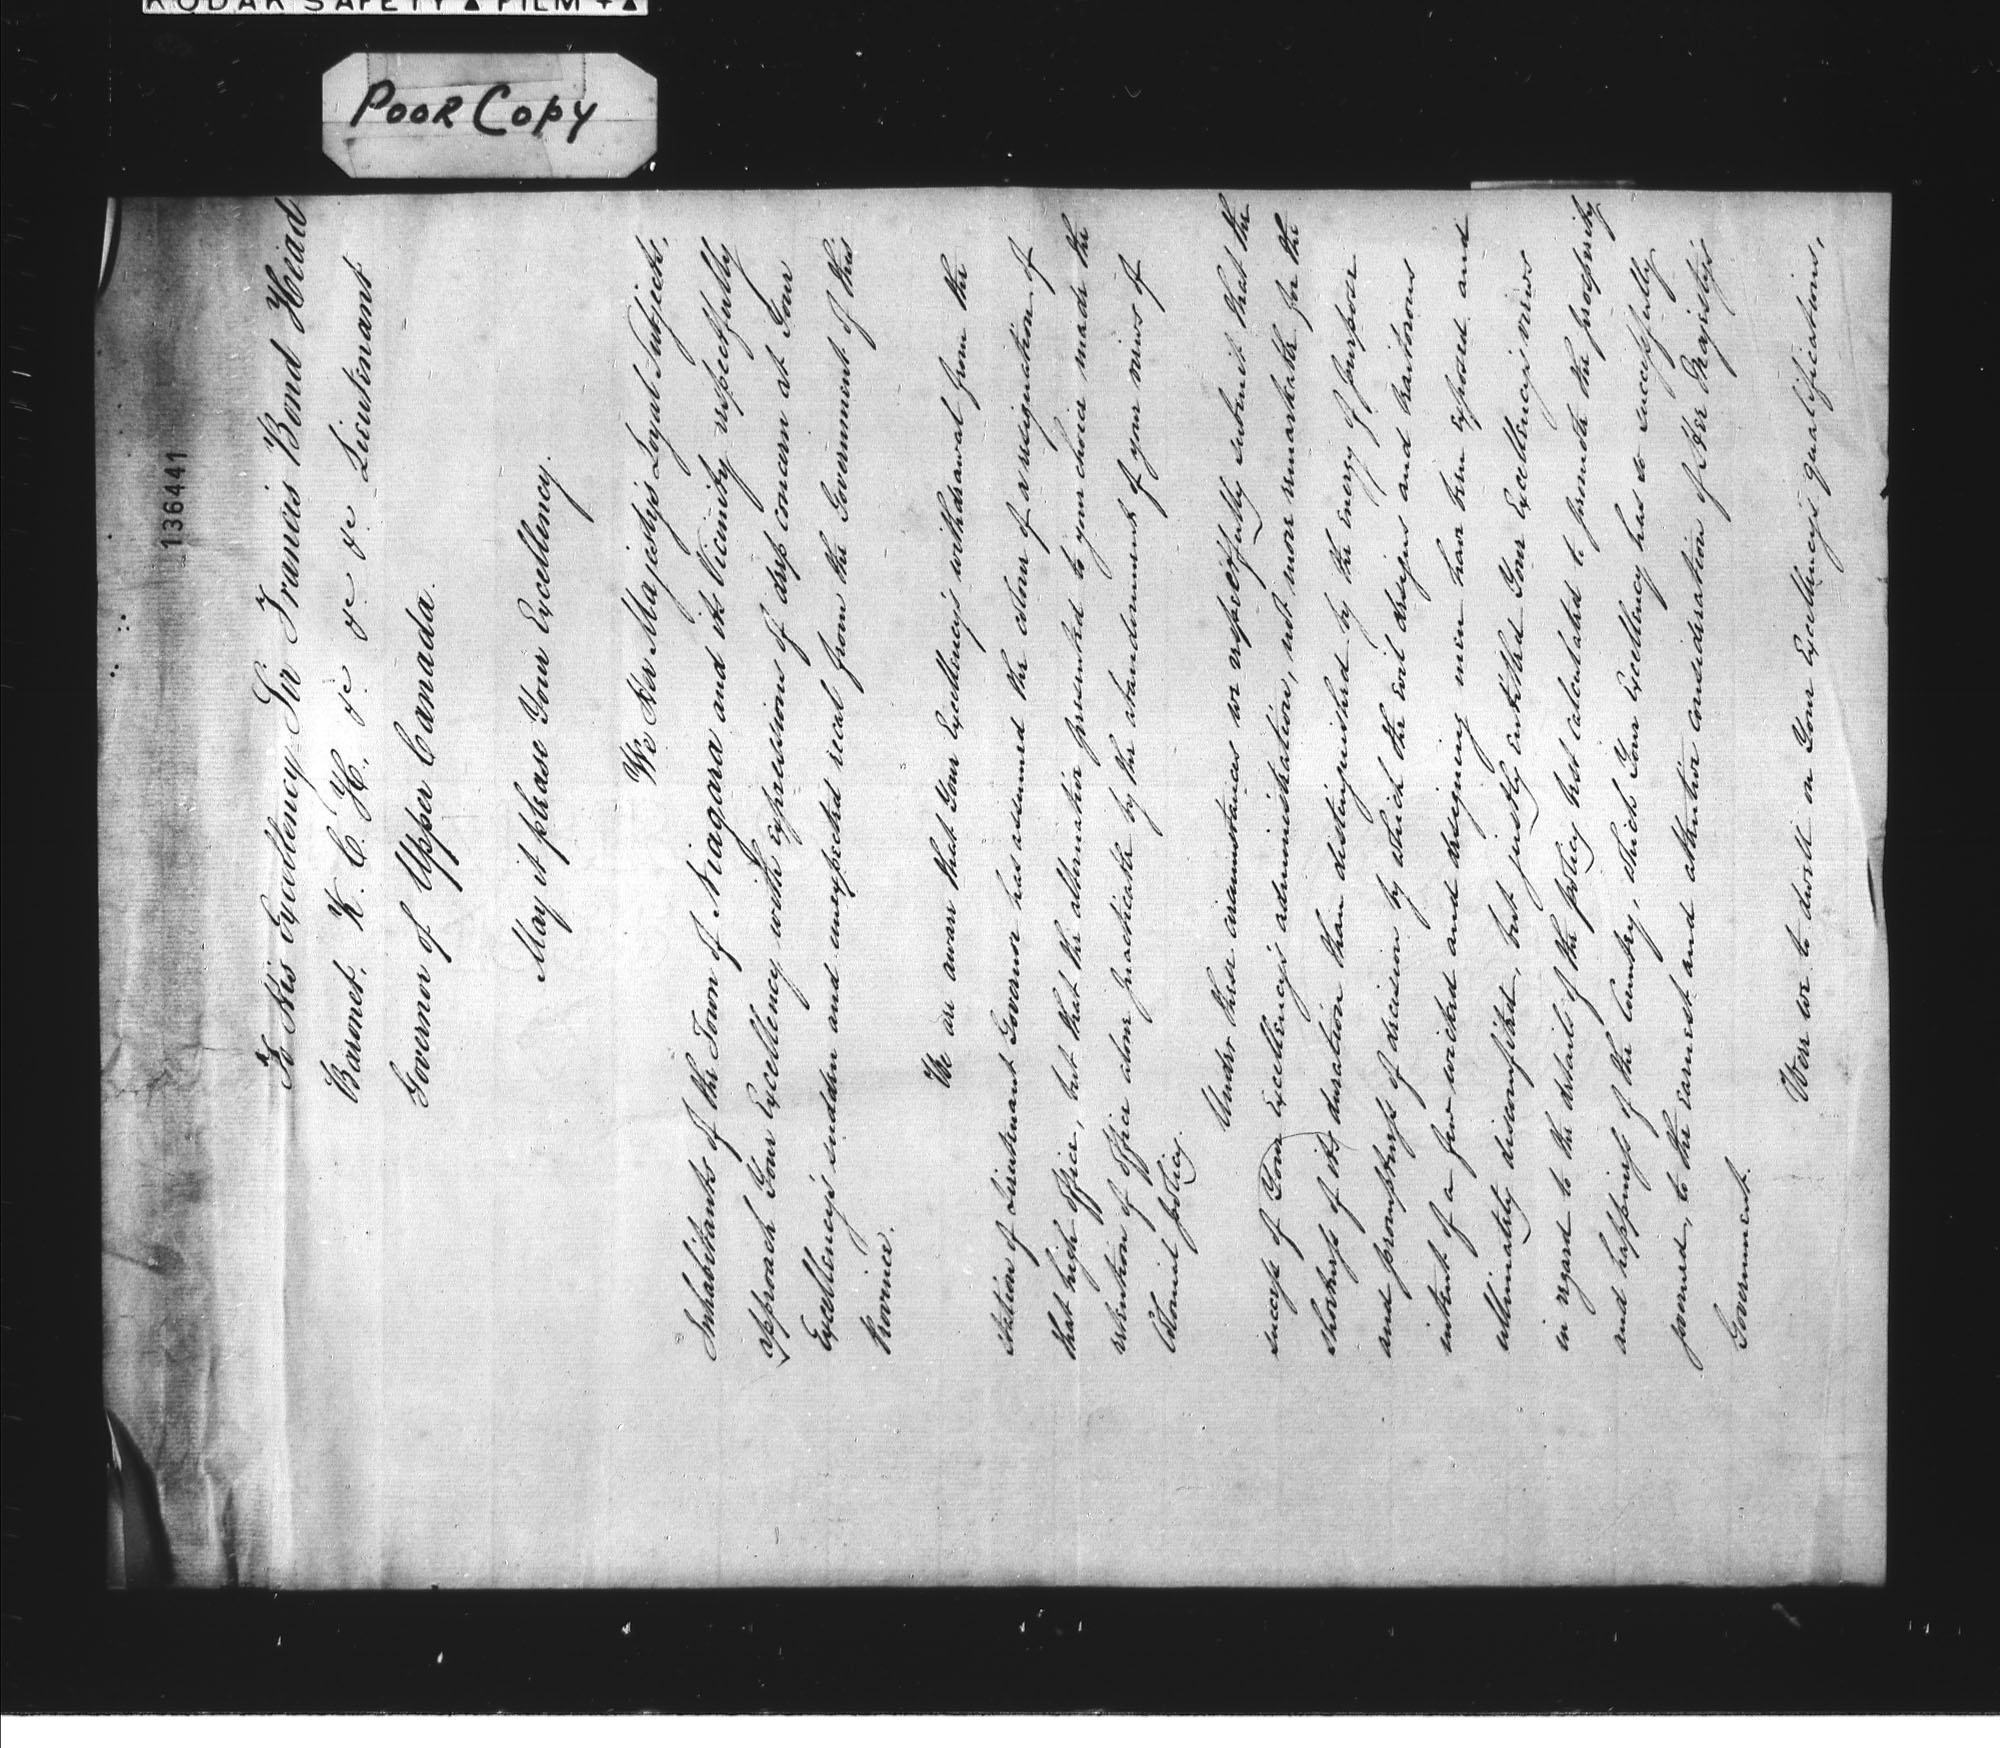 KODAK SAFETY ▲ FILM + ▲
POOR COPY
136441
To His Excellency Sir Francis Bond Head
Baronet, K. C. H. &c &c &c Lieutenant
Governor of Upper Canada.
May it please Your Excellency.
We Her Majesty's Loyal Subjects,
Inhabitants of the Town of Niagara and its Vicinity respectfully
approach Your Excellency with expressions of deep concern at Your
Excellency's sudden and unexpected recal from the Government of this
Province.
We are aware that Your Excellency's withdrawal from the
station of Lieutenant Governor has assumed the colour of a resignation of
that high office, but that the alternative presented to your choice made the
retention of office alone practicable by the abandonment of your views of
Colonial policy.
Under these circumstances we respectfully submit that the
success of Your Excellency's administration, not more remarkable for the
shortness of its duration than distinguished by the energy of purpose
and promptness of decision by which the evil designs and traitorous
intent of a few wicked and designing men have been exposed and
ultimately discomfited, but justly entitled Your Excellency's views
in regard to the details of the policy best calculated to promote the prosperity
and happiness of the Country, which Your Excellency has so successfully
governed, to the earnest and attentive consideration of Her Majesty's
Government.
Were we to dwell on Your Excellency's qualifications,